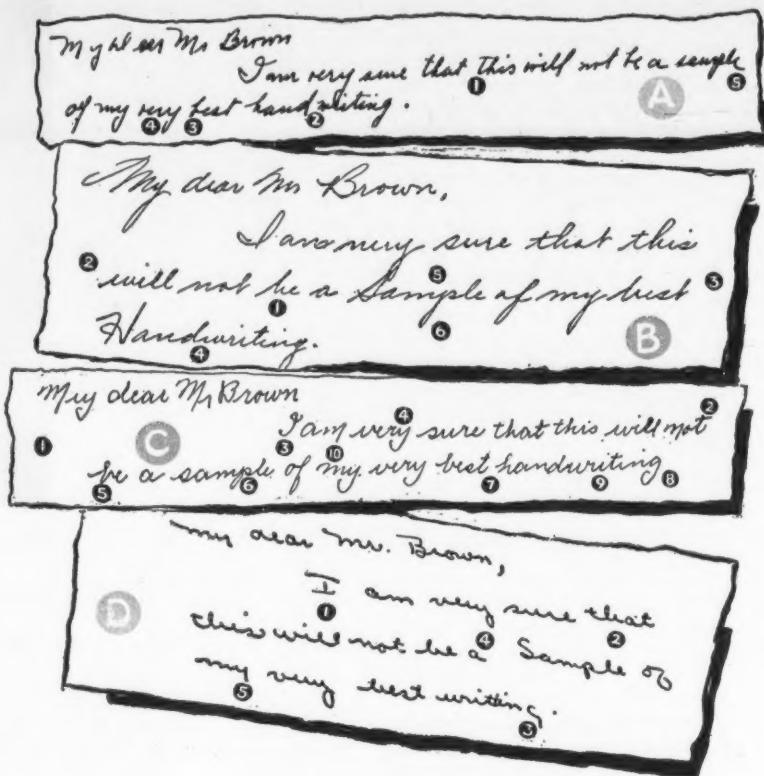 My dear Mr Brown
I am very sure that this will not be a sample
1 A 5
of my very best handwriting.
4 3 2
My dear Mr Brown,
I am very sure that this
2 5 3
will not be a Sample of my best
1 6 B
Handwriting.
4
My dear Mr Brown
4 2
1 C I am very sure that this will not
3 10
be a sample of my very best handwriting
5 6 7 9 8
my dear Mr. Brown,
I am very sure that
D 1 4 2
this will not be a Sample of
my very best writing.
5 3